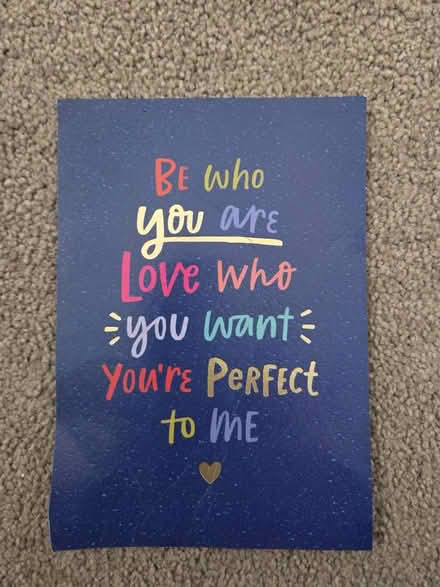 BE who
you are
Love who
you want
YOU'RE PERFECT
to ME